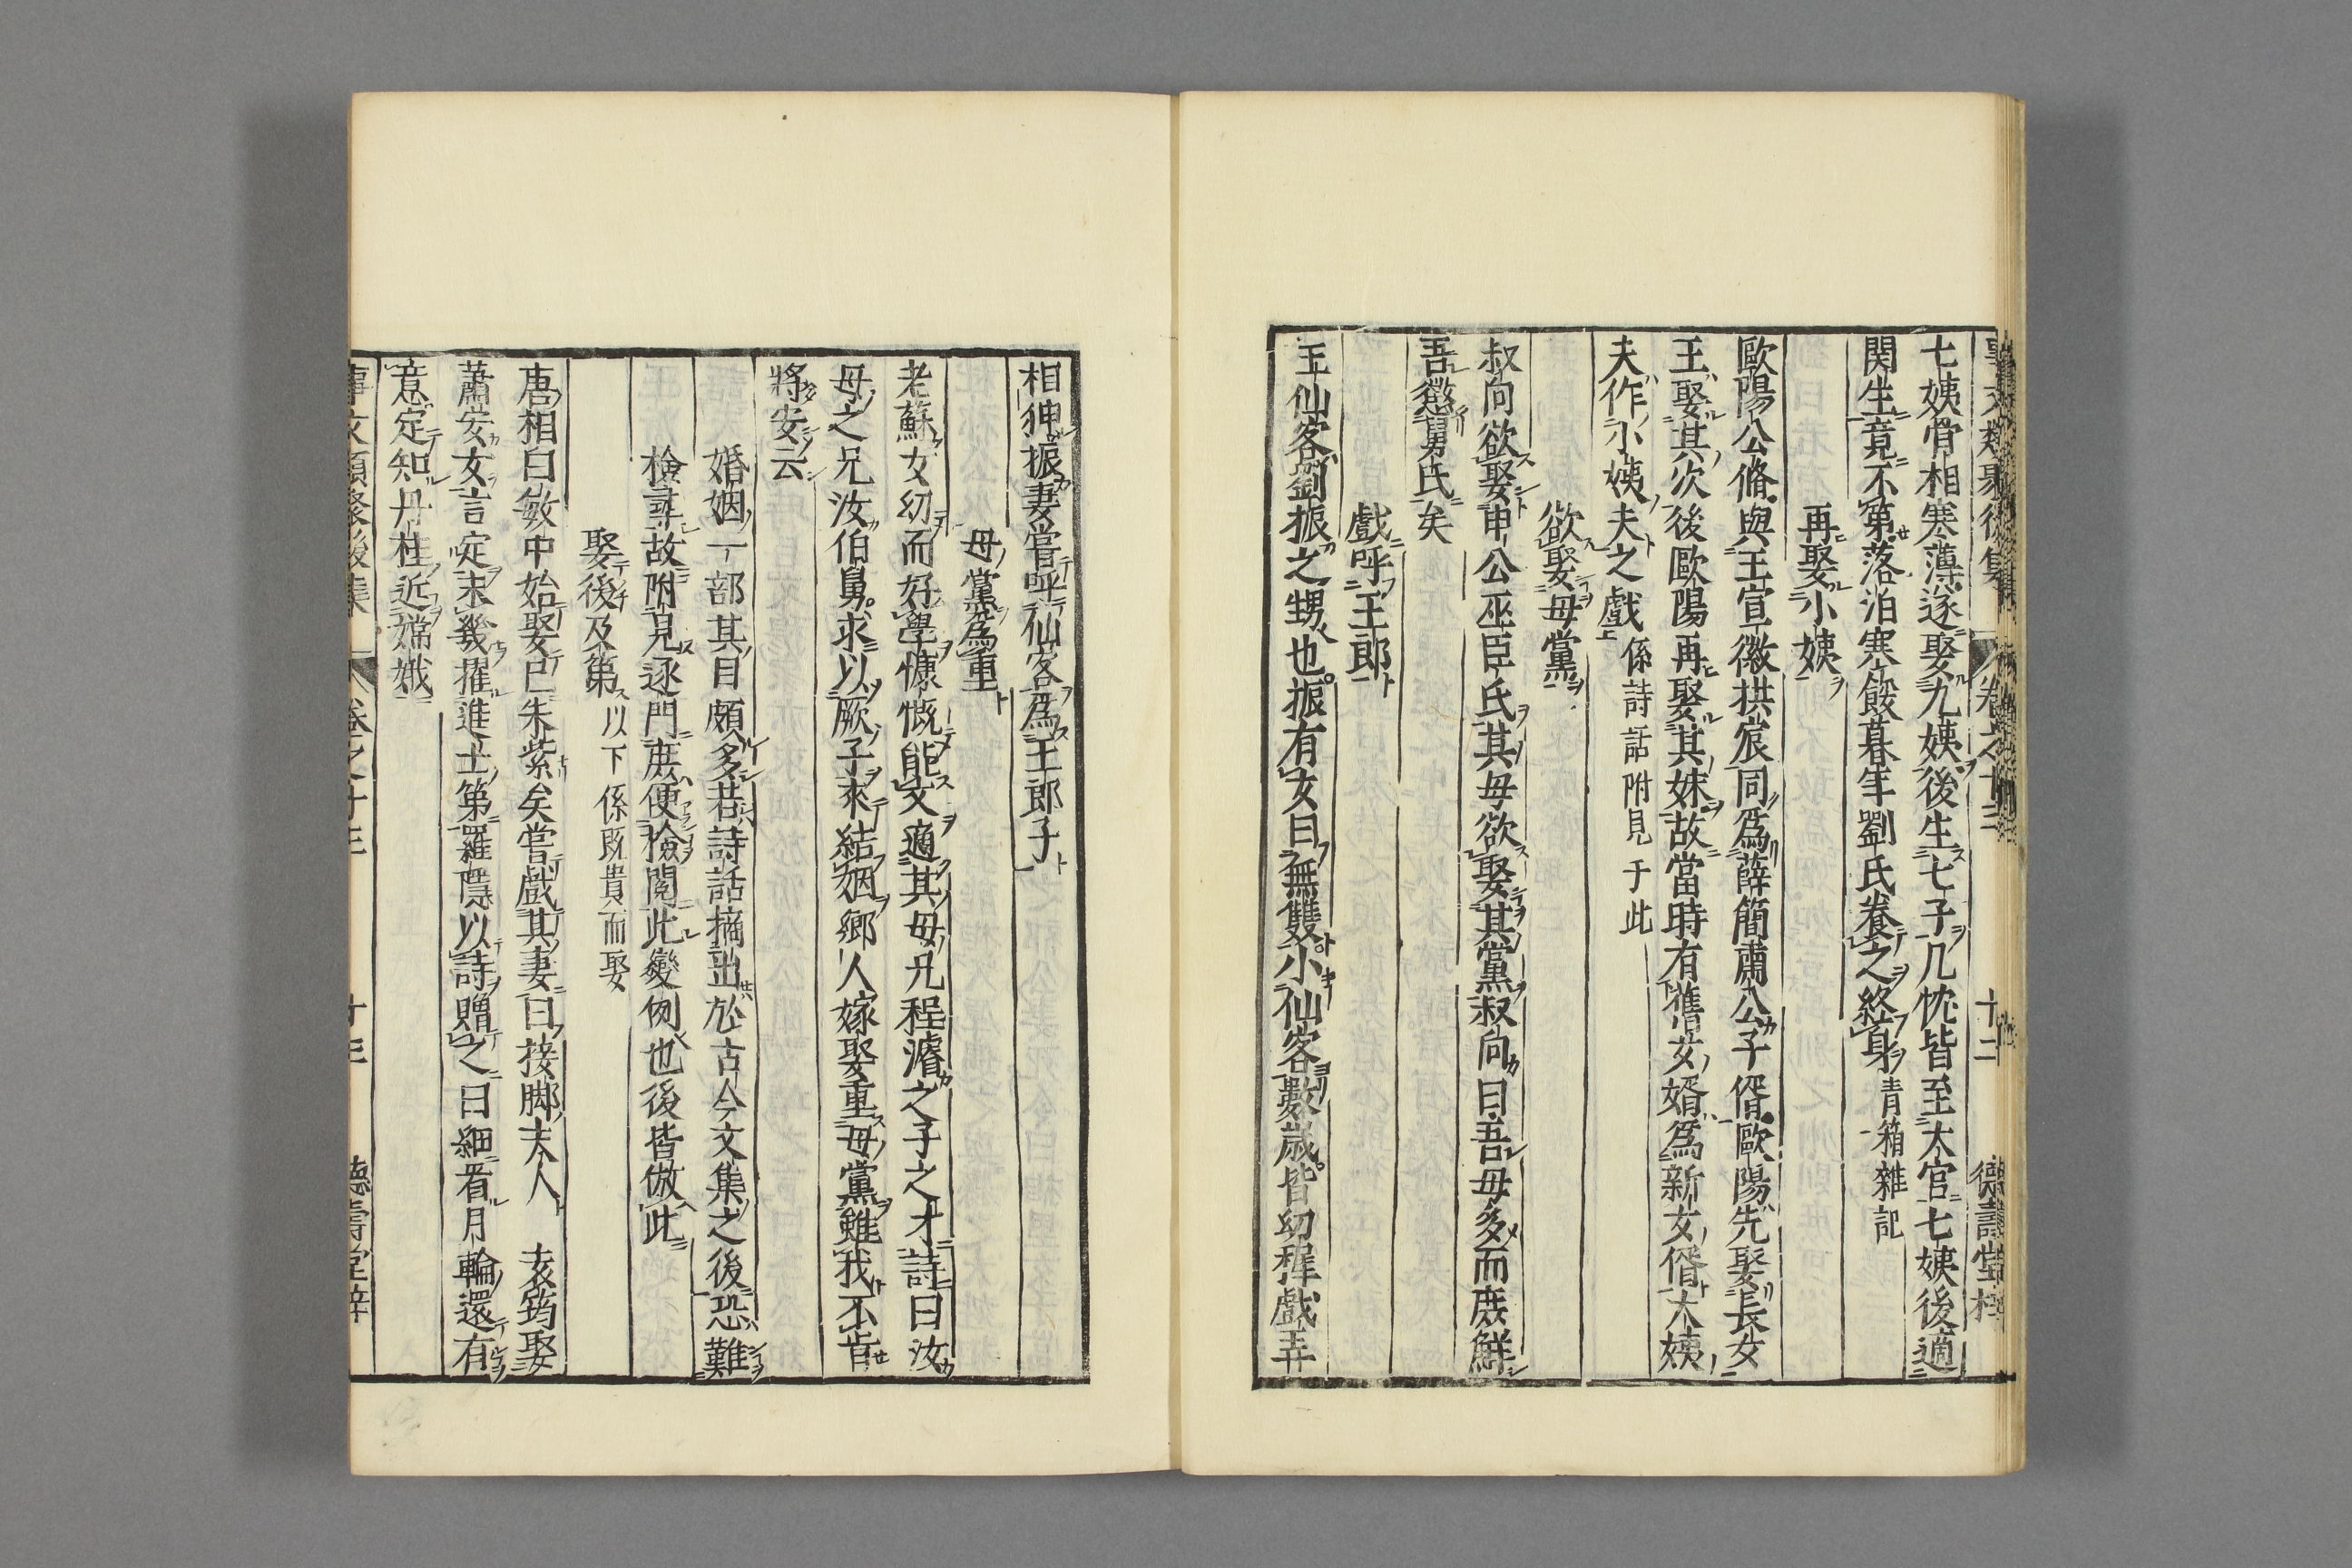 七姨骨相寒薄遂娶九姨後生七子几忱皆至大官七姨後適
関生竟不第落泊寒餒暮年劉氏養之終身青箱雜記
再娶小姨
歐陽公脩與王宣徽拱宸同爲薛簡肅公子偦歐陽先娶長女
王娶其次後歐陽再娶其妹故當時有舊女婿爲新女偦大姨
夫作小姨夫之戲係詩話附見于此
欲娶母黨
叔向欲娶申公巫臣氏其母欲娶其黨叔向曰吾母多而庶鮮
吾懲舅氏矣
戲呼王郎
王仙客劉振之甥也振有女曰無雙小仙客數歲皆幼稺戲弄
相狎振妻嘗呼仙客爲王郎子
母黨爲重
老蘇女幼而好學慷慨能文適其母兄程濬之子之才詩曰汝
母之兄汝伯舅求以厥子來結姻鄉人嫁娶重母黨雖我不肯
將安云
婚姻一部其目頗多若詩話摘出於古今文集之後恐難
檢尋故附見逐門庶便檢閱此變例也後皆倣此
娶後及第以下係既貴而娶
唐相曰敏中始娶已朱紫矣嘗戲其妻曰接脚夫人 袁筠娶
蕭安女言定未幾擢進士第羅隱以詩贈之曰細看月輪還有
意定知丹桂近嫦娥